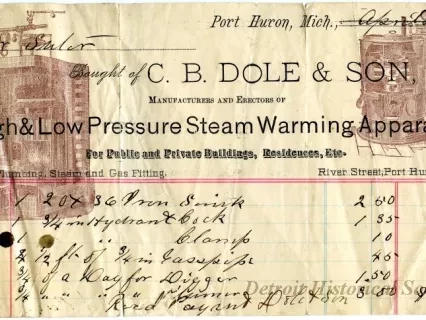 Port Huron, Mich.,
Bought of C. B. DOLE & SON,
MANUFACTURERS AND ERECTORS OF
gh & Low Pressure Steam Warming Appara
For Public and Private Buildings, Residences, Etc.
Plumbing, Steam and Gas Fitting. River Street, Port Hu
1 20 x 36 Iron Sink 2 50
1 3/4 in Hydrant Cock 1 35
1 " Clamp 10
2 1/2 ft. of 3/4 in Gasspipe 45
3/4 of a Day for Digger 1 50
3/4 " " " " 3 50
Recd Payant Dole & Son
Detroit Historical So